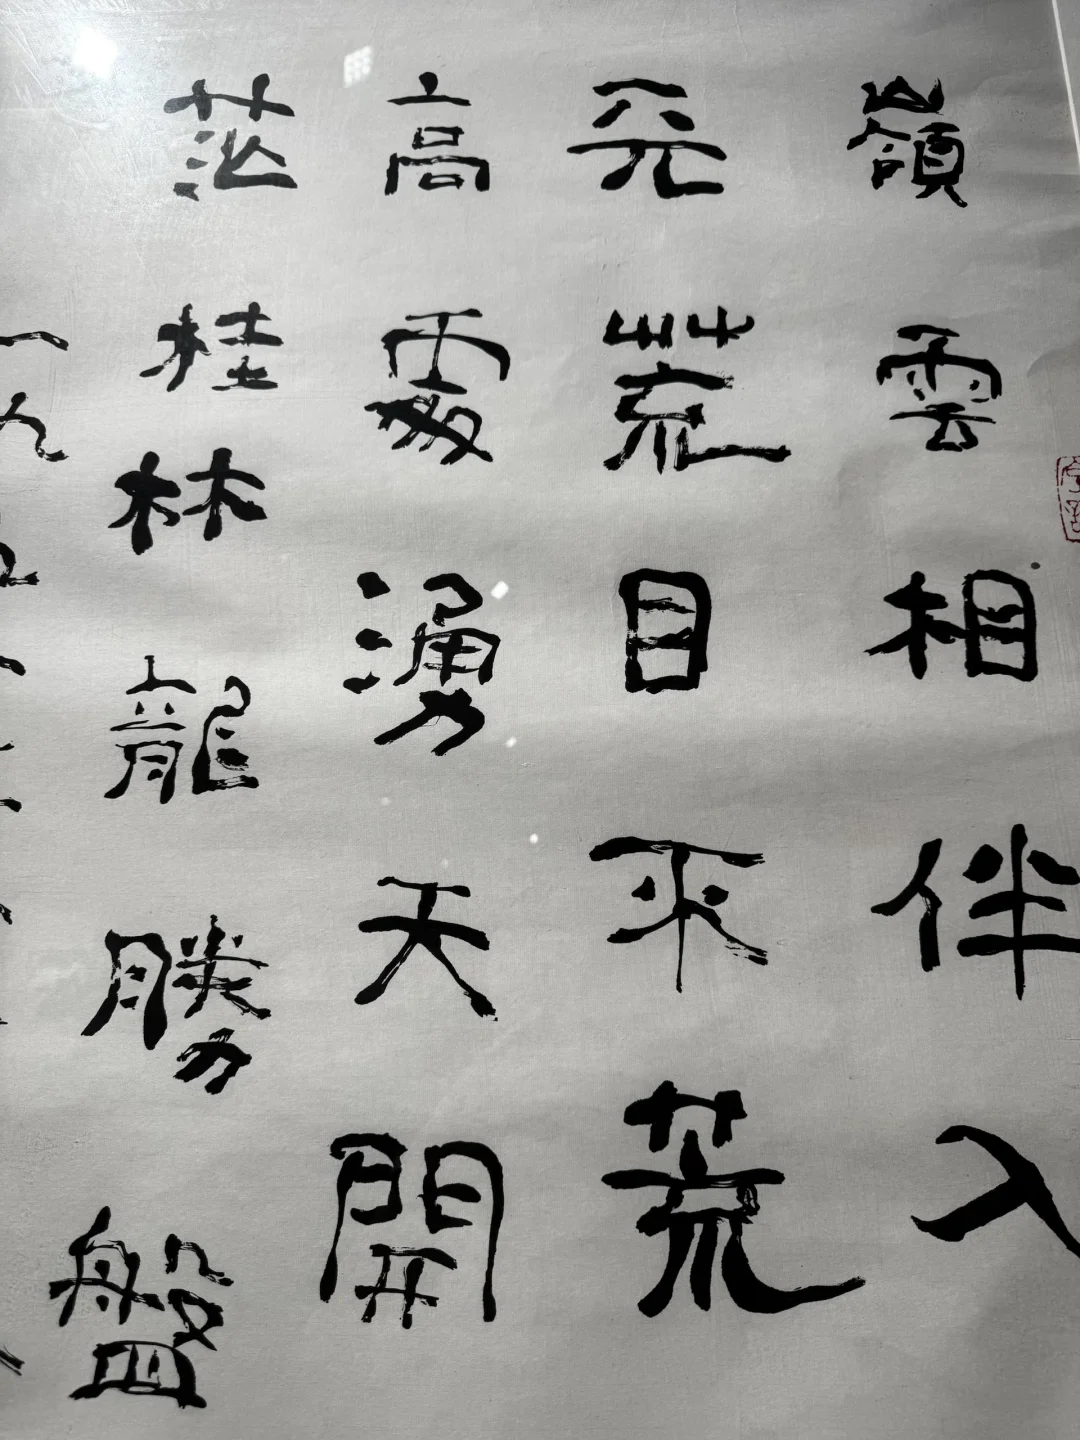 嶺雲相伴入
荒目不荒
高處湧天開
茫桂林龍勝盤